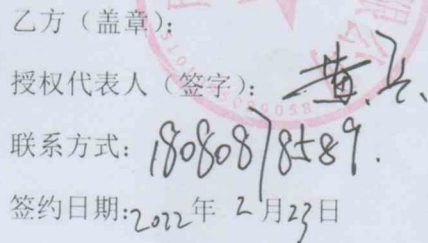 乙方（盖章）：
授权代表人（签字）：黄兵
联系方式：18080878589.
签约日期：2022年2月23日